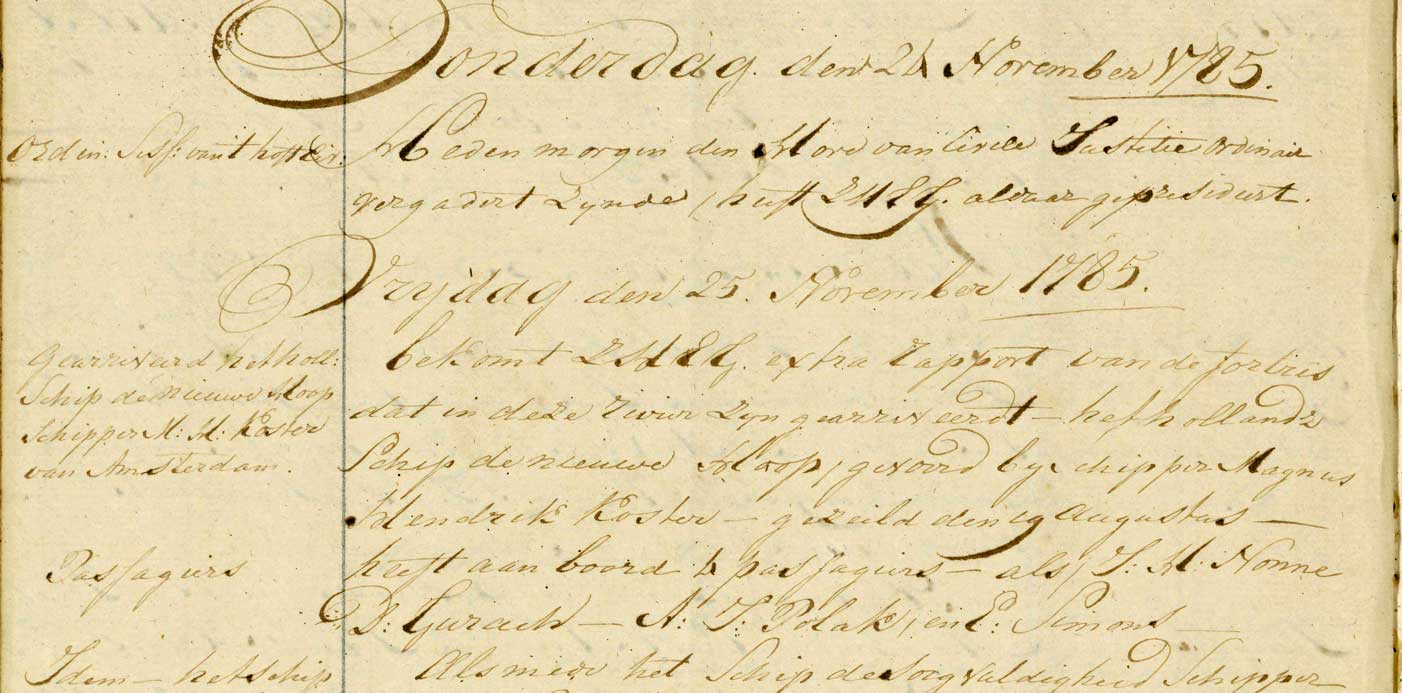 Donderdag den 24 November 1785.
Ordin: Sess: van't hoff Civ:
Heden morgen den Hove van Civile Justitie ordinair
vergadert zynde, heeft ZHEG. aldaar gepresideert.
Vrijdag den 25. November 1785.
gearriveerd het holl:
Schip de nieuwe Hoop
Schipper M: H: Koster
van Amsterdam.
bekomt ZHEG. extra rapport van de fortres
dat in deze rivier zyn gearriveerdt - het hollandz
Schip de nieuwe Hoop, gevoerd by schipper Magnus
Hendrik Koster - gezeild den 19 augustus -
Passagiers
heeft aan boord 4 passagiers - als, J: H: Nonne
D: - A: J: Polak, en E: Simons -
Idem - het schip
Als mede het Schip de Sorgvuldigheid Schipper